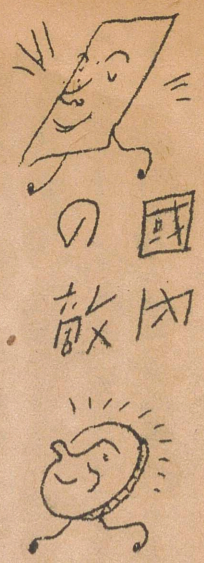 國内
の敵